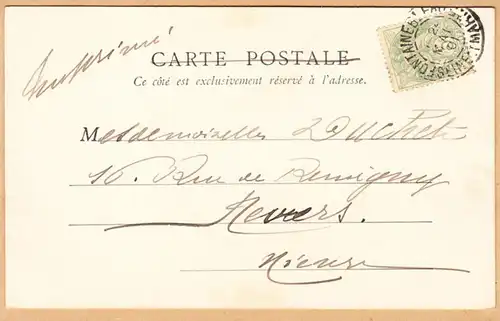 Imprimé
CARTE POSTALE
Ce côté est exclusivement réservé à l'adresse.
Mesdemoiselles Duchet
16. Rue de Remigny
Nevers.
Nièvre
FONTAINEBLEAU SEINE-ET-MARNE